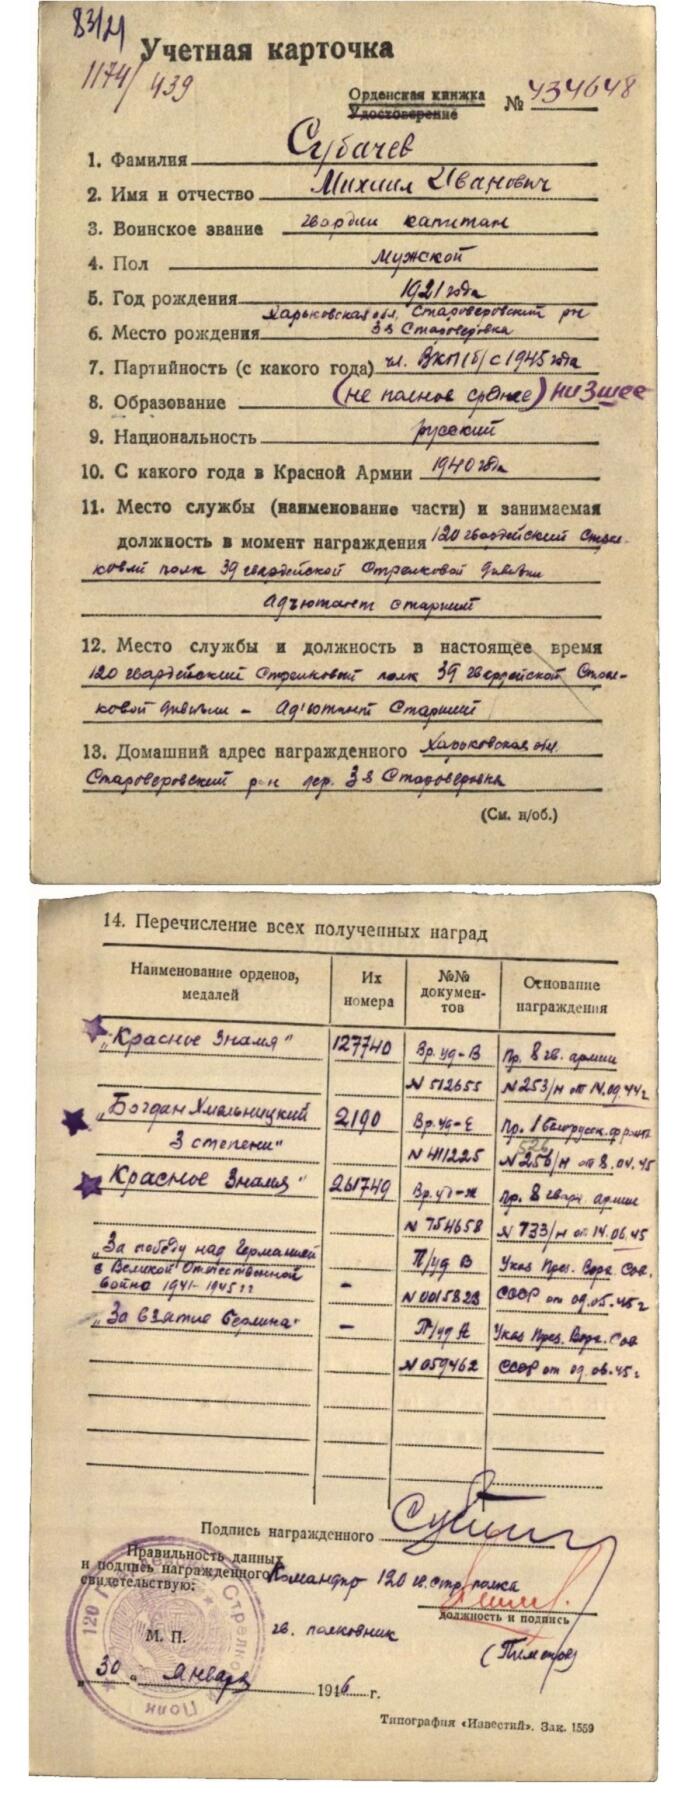 83/21
1174/439
Учетная карточка
Орденская книжка
Удостоверение № 434648
1. Фамилия Субачев
2. Имя и отчество Михаил Иванович
3. Воинское звание гвардии капитан
4. Пол Мужской
5. Год рождения 1921 года
Харьковская обл. Староверовский рн
6. Место рождения 3я Староверовка
7. Партийность (с какого года) чл. ВКП(б) с 1945 года
8. Образование (не полное среднее) низшее
9. Национальность русский
10. С какого года в Красной Армии 1940 года
11. Место службы (наименование части) и занимаемая
должность в момент награждения 120 гвардейский Стрел-
ковый полк 39 гвардейской Стрелковой дивизии
Адъютант старший
12. Место службы и должность в настоящее время
120 гвардейский Стрелковый полк 39 гвардейской Стрел-
ковой дивизии - Адъютант Старший
13. Домашний адрес награжденного Харьковская обл.
Староверовский р-н 3я Староверовка
(См. н/об.)
14. Перечисление всех полученных наград
Наименование орденов, медалей Их номера №№ докумен-тов Основание награждения
„Красное Знамя" 127740 Вр. уд-В Пр. 8 гв. армии
N 512655 N 253/н от 14.09.44 г
„Богдан Хмельницкий 2190 Вр. уд-Е Пр. 1 Белорусск. фронта
526
3 степени" N 411225 N 256/н от 8.04.45
„Красное Знамя" 261749 Вр. уд-ж Пр. 8 гвард. армии
N 754658 N 733/н от 14.06.45
„За победу над Германией П/уд В Указ През. Верх. Сов.
в Великой Отечественной
войне 1941-1945 гг - N 0015823 СССР от 09.05.45 г
„За взятие Берлина" - П/уд А Указ През. Верх. Сов
N 059462 СССР от 09.06.45 г
Подпись награжденного
Правильность данных
и подпись награжденного Командир 120 гв. стр. полка
свидетельствую:
должность и подпись
М. П. гв. полковник
„30" Января 1946 г.
120 Гвардейский Стрелковый Полк
Типография «Известий». Зак. 1559